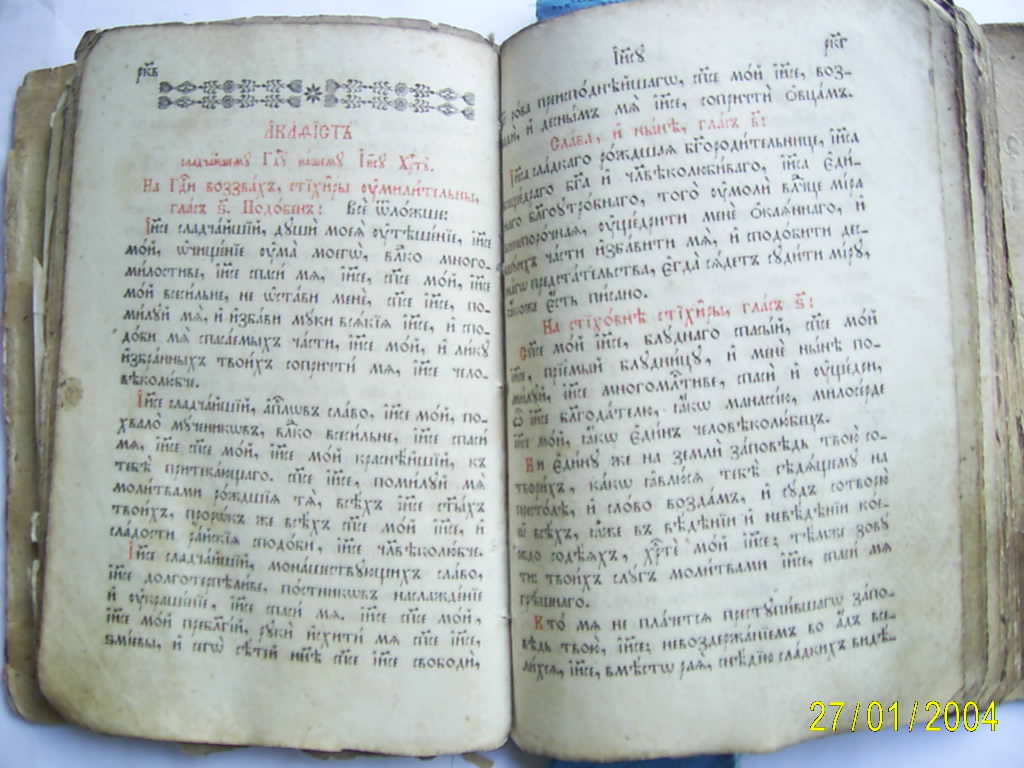 рк҃в
АКАѲІСТЪ
сладчайшему Гдⷭ҇у нашему І҆и҃су Хрⷭ҇ту̀.
На Гдⷭ҇и воззва́хъ, стїхи҄ры ᲂу҆мили́тельны,
гла́съ ѕ҃. Подо́бенъ: Всѐ ѿло́жше:
І҆и҃се сладча́йшїй, дꙋшѝ моеѧ̀ ᲂу҆тѣше́нїе, і҆и҃се
мо́й, ѡ҆чище́нїе ᲂу҆ма̀ моегѡ̀, влⷣко много-
ми́лостиве, і҆и҃се спасѝ мѧ̀, і҆и҃се, сп҃се мо́й, і҆и҃се
мо́й всеси́льне, не ѡ҆ста́ви менѐ, сп҃се і҆и҃се, по-
ми́лꙋй мѧ̀, и҆ и҆зба́ви мꙋ́ки всѧ́кїѧ і҆и҃се, и҆ спо-
до́би мѧ̀ спаса́емыхъ ча́сти, і҆и҃се мо́й, и҆ ли́кꙋ
и҆збра́нныхъ твои́хъ сопричтѝ мѧ̀, і҆и҃се чело-
вѣколю́бче.
І҆и҃се сладча́йшїй, а҆пⷭ҇лѡвъ сла́во, і҆и҃се мо́й, по-
хвало̀ мꙋ́ченикѡвъ, влⷣко всеси́льне, і҆и҃се спасѝ
мѧ̀, і҆и҃се сп҃се мо́й, і҆и҃се мо́й краснѣ́йшїй, къ
тебѣ̀ притека́ющаго. сп҃се і҆и҃се, поми́лꙋй мѧ̀
моли́твами ро́ждшїѧ тѧ̀, всѣ́хъ і҆и҃се ст҃ы́хъ
твои́хъ, прⷪ҇ро́къ же всѣ́хъ сп҃се мо́й і҆и҃се, и҆
сла́дости ра́йскїѧ сподо́би, і҆и҃се чл҃вѣколю́бче.
І҆и҃се сладча́йшїй, мона́шествꙋющихъ сла́во,
і҆и҃се долготерпѣли́ве, по́стникѡвъ наслажде́нїе
и҆ ᲂу҆краше́нїе, і҆и҃се спасѝ мѧ̀. і҆и҃се сп҃се мо́й,
і҆и҃се мо́й пребл҃гі́й, рꙋкѝ и҆схитѝ мѧ̀ сп҃се і҆и҃се,
ѕмїевы, и҆ сегѡ̀ сѣ́тей нн҃ѣ сп҃се і҆и҃се свободѝ,
І҆и҃сꙋ
рк҃г
ро́ва преиспо́днѣйшагѡ, сп҃се мо́й і҆и҃се, воз-
и҆ десны́мъ мѧ̀ і҆и҃се, сопричтѝ ѻ҆вца́мъ.
Сла́ва, и҆ ны́нѣ, гла́съ
І҆и҃са сла́дкаго ро́ждшаѧ бг҃ороди́тельнице, і҆и҃са
бг҃а и҆ чл҃вѣколюби́ваго, і҆и҃са є҆ди́-
наго бл҃гоꙋтро́бнаго, того̀ ᲂу҆молѝ влⷣчце мі́ра
ᲂу҆ще́дрити менѐ ѻ҆каѧ́ннаго, и҆
ча́сти и҆зба́вити мѧ̀, и҆ сподо́бити дес-
нагѡ предста́тельства, є҆гда̀ сѧ́детъ сꙋди́ти мі́рꙋ,
є҆́сть пи́сано.
На стїхо́внѣ стїхи҄ры, гла́съ ѕ҃:
Сп҃се мо́й і҆и҃се, блꙋ́днаго спасы́й, сп҃се мо́й
і҆и҃се, прїе́мый блꙋдни́цꙋ, и҆ менѐ ны́нѣ по-
ми́лꙋй, і҆и҃се многомлⷭ҇тиве, спасѝ и҆ ᲂу҆ще́дри,
ѽ і҆и҃се бл҃года́телю, ꙗ҆́кѡ манассі́ю, милосе́рде
і҆и҃се мо́й, ꙗ҆́кѡ є҆ди́нъ человѣколю́бецъ.
Ни є҆ди́нꙋ же на землѝ за́повѣдь твою̀ со-
твори́хъ, ка́кѡ ꙗ҆влю́сѧ тебѣ̀ сѣдѧ́щемꙋ на
престо́лѣ, и҆ сло́во возда́мъ, и҆ сꙋ́дъ сотворю̀
всѣ́хъ, ꙗ҆̀же въ вѣ́дѣнїи и҆ невѣ́дѣнїи ко́г-
ждо содѣ́ѧхъ, хрⷭ҇тѐ мо́й і҆и҃се; тѣ́мже зовꙋ̀
ти: твои́хъ слꙋ́гъ моли́твами і҆и҃се, спасѝ мѧ̀
грѣ́шнаго.
Кто̀ мѧ̀ не пла́четсѧ престꙋпи́вшагѡ за́по-
вѣдь твою̀, і҆и҃се; невоздержа́нїемъ во а҆́дъ все-
ли́хсѧ, і҆и҃се, вмѣ́стѡ раѧ̀, снѣ́дїю сла́дкихъ ви́дѣ-
27/01/2004